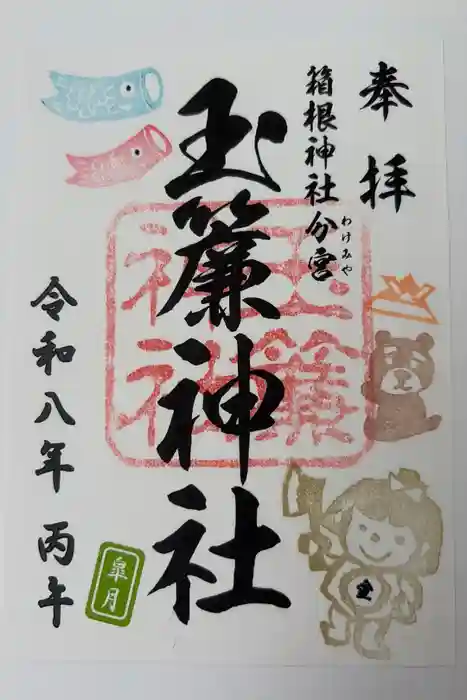 奉拝
箱根神社分宮
わけみや
玉簾神社
玉簾神社
令和八年 丙午
皐月
金